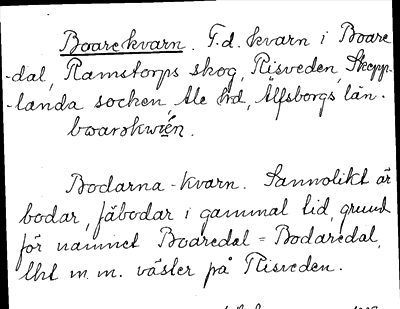 Boarekvarn. F.d. kvarn i Boare
-dal, Ramstorps skog, Risveden, Skepp-
-landa socken, Ale hrd, Älfsborgs län.
boarəkwιέn.
Bodarna-kvarn. Sannolikt är
bodar, fäbodar i gammal tid, grund
för namnet Boaredal = Bodaredal,
Uxl m.m. väster på Risveden.